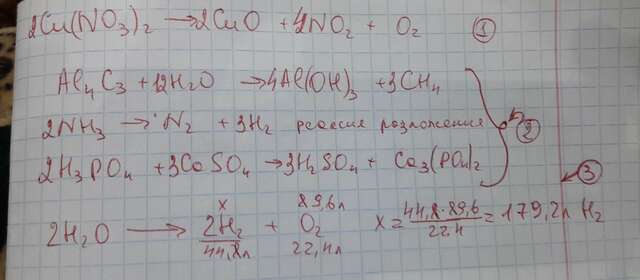 2Cu(NO3)2 → 2CuO + 4NO2 + O2 1
Al4C3 + 12H2O → 4Al(OH)3 + 3CH4
2NH3 → N2 + 3H2 реакция разложения 2
2H3PO4 + 3CaSO4 → 3H2SO4 + Ca3(PO4)2
3
x 89,6л
2H2O → 2H2 + O2 x = 44,8·89,6 / 22,4 = 179,2л H2
44,8л 22,4л